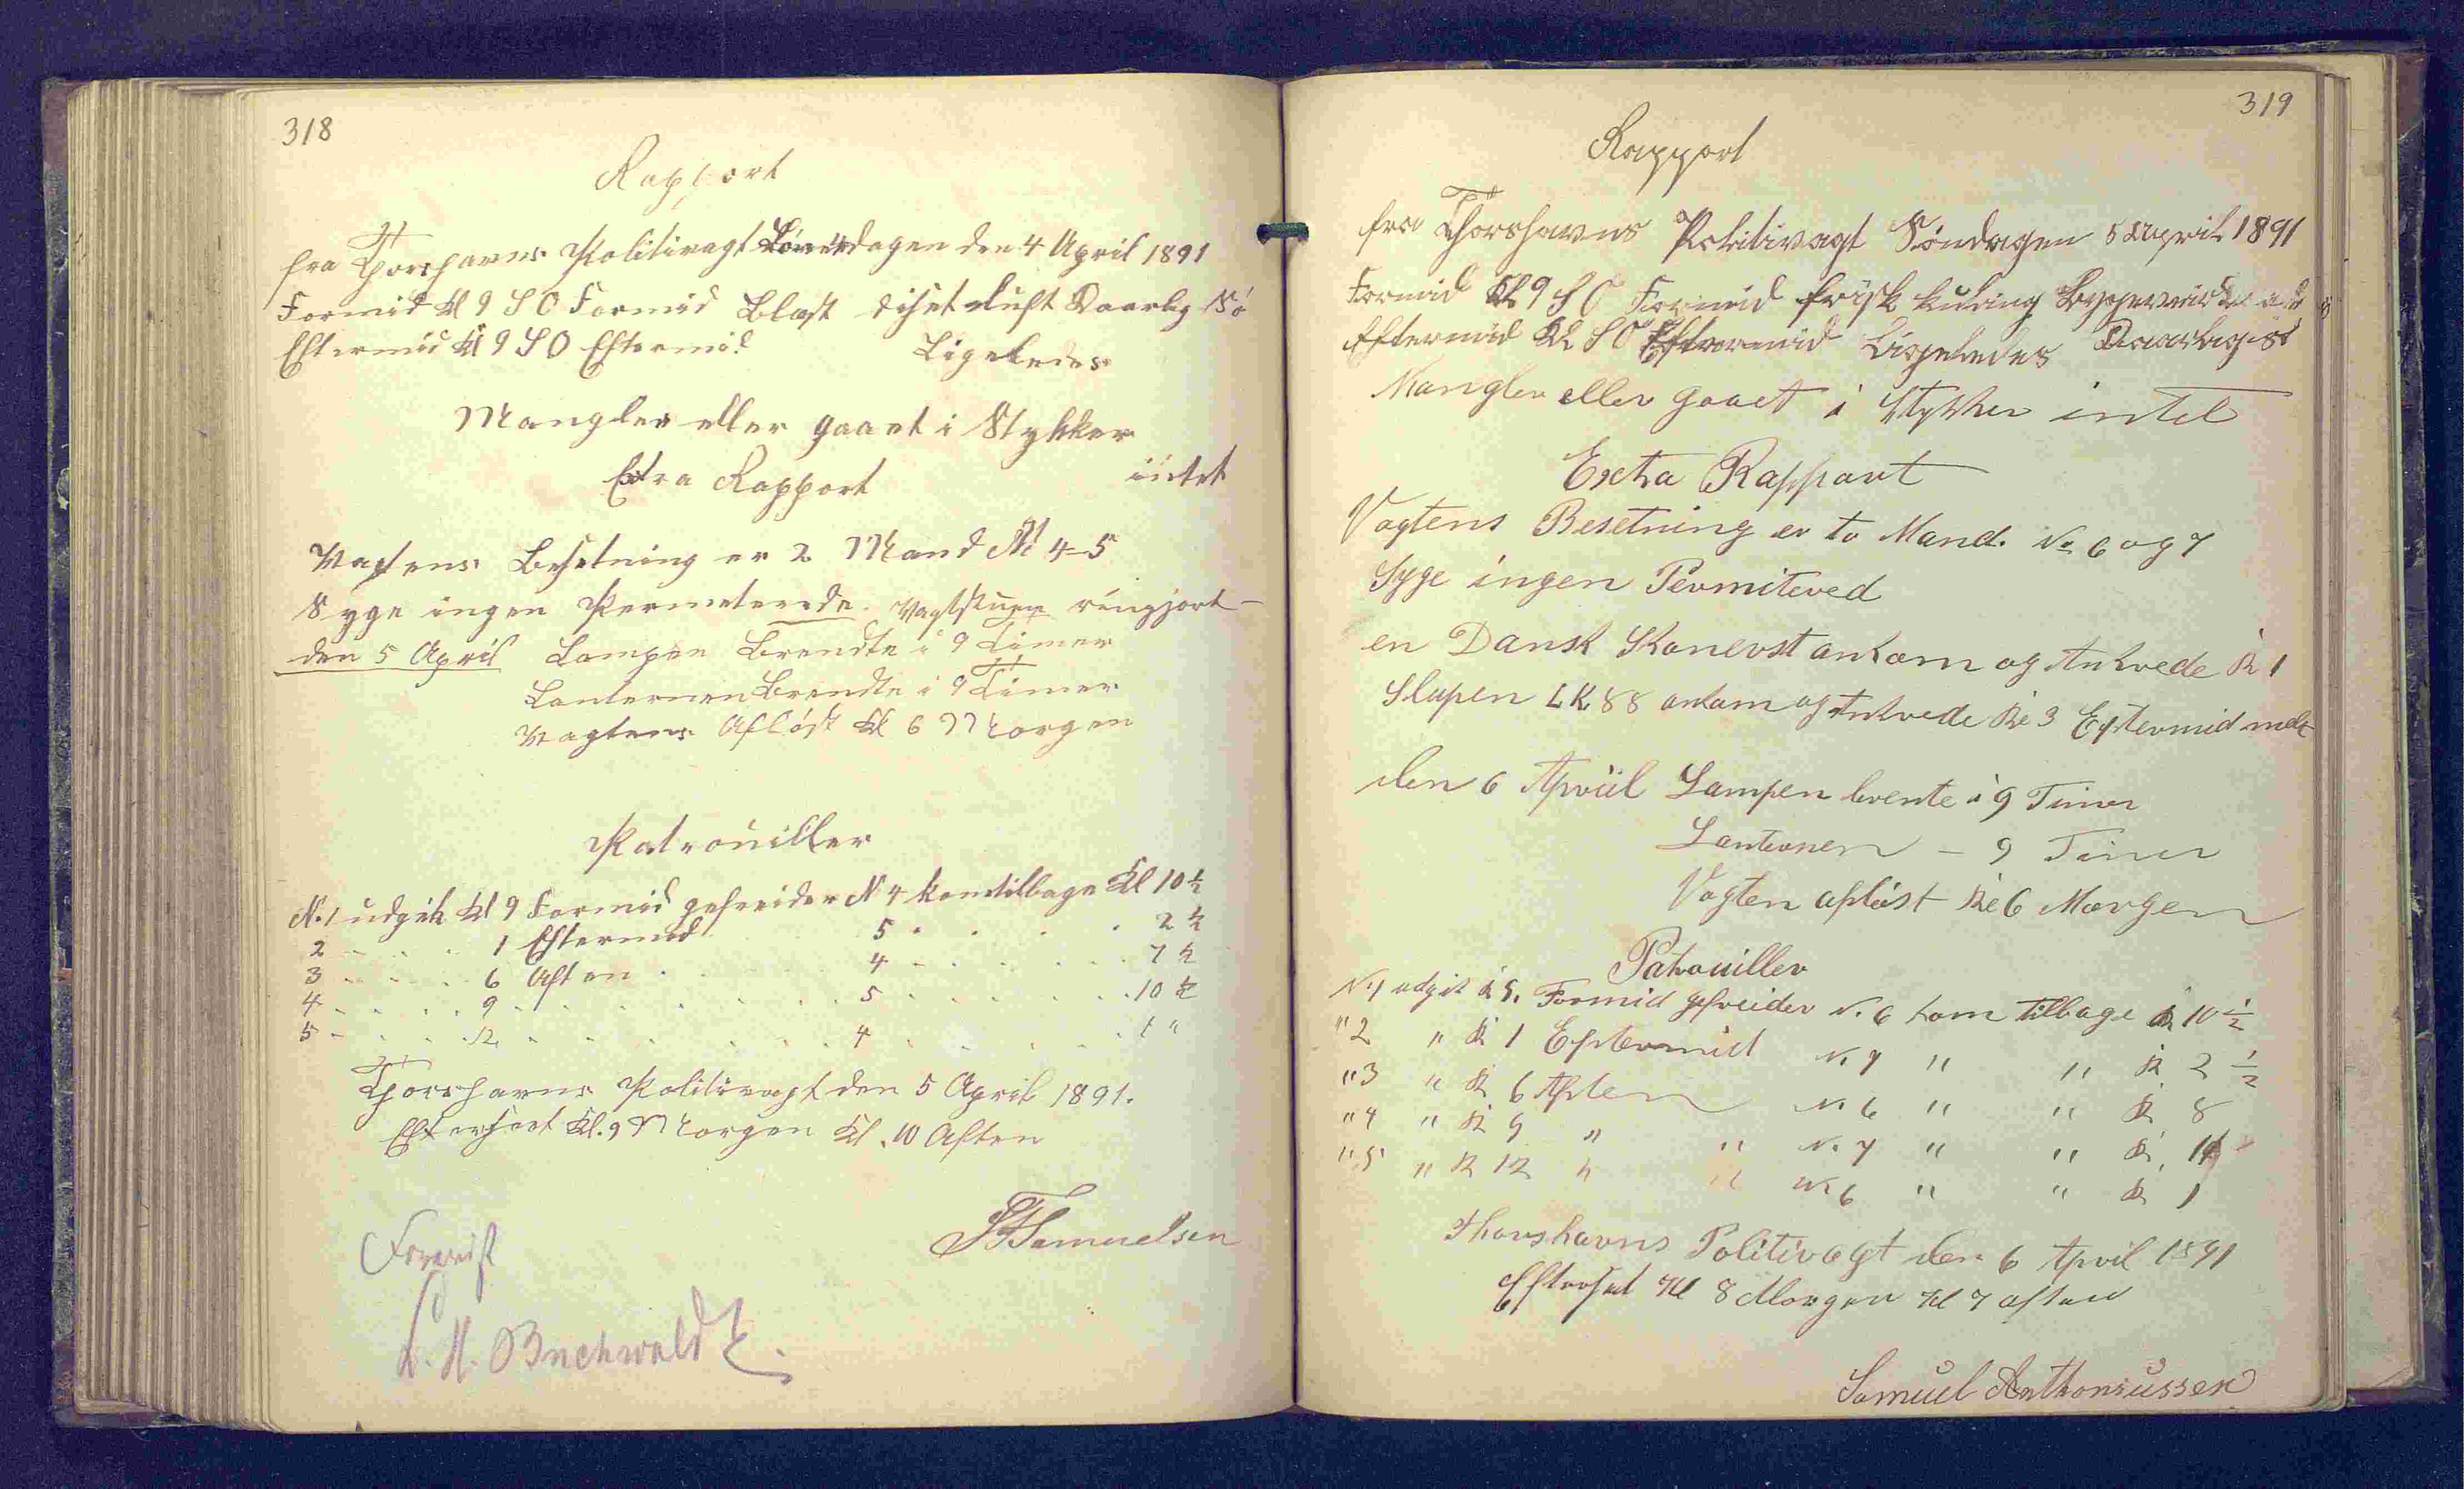 318
Rapport
fra Thorshavns Politivagt Löverdagen den 4 April 1891
Formid Kl 9 S O Formid Blæst diset Luft Daarlig Sö
Eftermid Kl 9 S O Eftermid Ligeledes
Mangler eller gaaet i Stykker
intet
Extra Rapport
Vagtens Besetning er 2 Mand No 4-5
Syge ingen Permeterede. Vagtstuen ringjort
den 5 April Lampen Brendte i 9 Timer
Lanternen Brendte i 9 Timer
Vagtens Aflöst Kl 6 Morgen
Patrouiller
No. 1 udgik Kl 9 Formid gefreider N 4 kom tilbage Kl 10 ½
2 - . . . 1 Eftermid 5 . . . . 2 ½
3 - . . . 6 Aften . 4 - . . . . 7 ½
4 - . . . 9 . . . . . 5 . . . . . 10 ½
5 - . . . 12 . . . . . 4 . . . . . 1 "
Thorshavns Politivagt den 5 April 1891.
Efterseet Kl. 9 Morgen Kl. 10 Aften
Samuelsen
Forevist
Buchwaldt.
319
Rapport
fra Thorshavns Politivagt Söndagen 5 April 1891
Formid Kl 9 S O Formid frisk kuling
Eftermid Kl S O Eftermid Ligeledes Daarlig Sö
Mangler eller gaaet i Stykker intet
Exta Rapport
Vagtens Besetning er to Mand. No 6 og 7
Syge ingen Permitered
en Dansk Skonerst ankom og Ankrede Kl 1
Slupen LK 88 ankom og Ankrede Kl 3 Eftermid
den 6 Apriil Lampen brente i 9 Timer
Lanternen - 9 Timer
Vagten aflöst Kl 6 Morgen
Patrouiller
N. 1 udgik Kl 9. Formid gefreider N. 6 kom tilbage Kl 10 ½
" 2 " Kl 1 Eftermid N. 7 " " Kl 2 ½
" 3 " Kl 6 Aften N. 6 " " Kl 8
" 4 " Kl 9 " " N. 7 " " Kl
" 5 " Kl 12 " " N. 6 " " Kl 1
Thorshavns Politivagt den 6 April 1891
Efterset Kl 8 Morgen Kl 7 aften
Samuel Anthoniussen